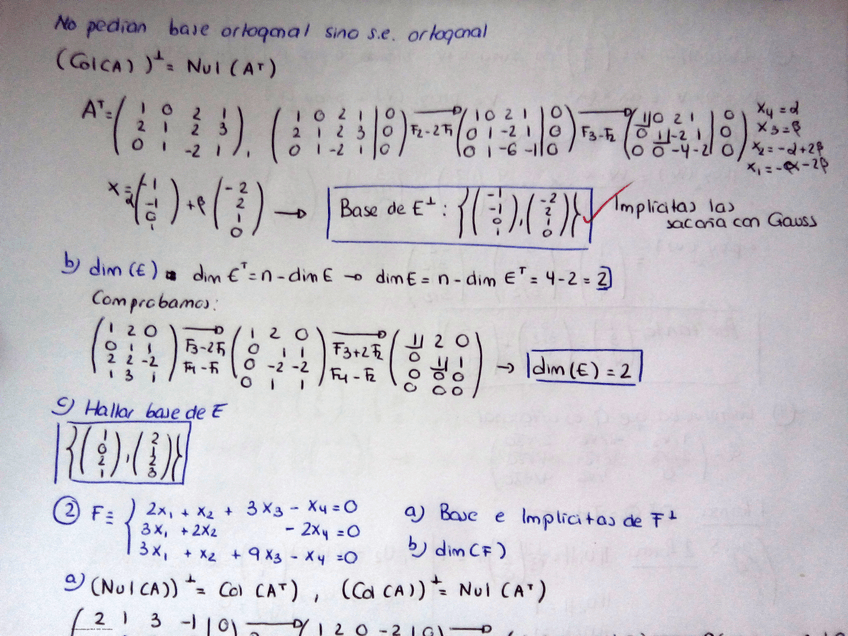 No pedian base ortogonal sino s.e. ortogonal
(Col(A))⊥ = Nul(Aᵀ)
Aᵀ = (1 0 2 1; 2 1 2 3; 0 1 -2 1), (1 0 2 1 | 0; 2 1 2 3 | 0; 0 1 -2 1 | 0) → F2-2F1 (1 0 2 1 | 0; 0 1 -2 1 | 0; 0 1 -6 -1 | 0) → F3-F2 (1 0 2 1 | 0; 0 1 -2 1 | 0; 0 0 -4 -2 | 0)
x4 = α
x3 = β
x2 = -α+2β
x1 = -α-2β
x = α(-1; -1; 0; 1) + β(-2; 2; 1; 0) → Base de E⊥: {(-1; -1; 0; 1), (-2; 2; 1; 0)} ✓ Implícitas las
sacaría con Gauss
b) dim(E) dim Eᵀ = n - dim E → dim E = n - dim Eᵀ = 4-2 = 2
Comprobamos:
(1 2 0; 0 1 1; 2 2 -2; 1 3 1) → F3-2F1 F4-F1 (1 2 0; 0 1 1; 0 -2 -2; 0 1 1) → F3+2F2 F4-F2 (1 2 0; 0 1 1; 0 0 0; 0 0 0) → dim(E) = 2
c) Hallar base de E
{(1; 0; 2; 1), (2; 1; 2; 3)}
2 F ≡ { 2x1 + x2 + 3x3 - x4 = 0 a) Base e Implícitas de F⊥
3x1 + 2x2 - 2x4 = 0
3x1 + x2 + 9x3 - x4 = 0 b) dim(F)
a) (Nul(A))⊥ = Col(Aᵀ), (Col(A))⊥ = Nul(Aᵀ)
(2 1 3 -1 | 0) → (1 2 0 -2 | 0) →